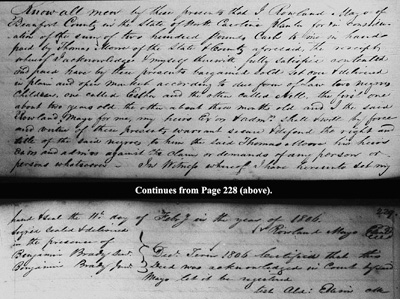 Know all men by these presents that I Rowland Mayo of
Beaufort County in the State of North Carolina Planter for & in Consider-
ation of the sum of two hundred pounds Curl to him in hand
paid by Thomas Moore of the State & County aforesaid the receipt
whereof I acknowledge & myself therewith fully satisfied contented
and paid have by these presents bargained sold set over & delivered
in plain and open market according to due form of Law two negroes
Children, one called and the other called the first one
about two years old the other about three months old and I the said
Rowland Mayo for me, my heirs Exrs & admrs Shall & will by force
and virtue of these presents warrant secure & defend the right and
title of the said negroes to him the said Thomas Moore his heirs
Exrs and admrs against the claim or demands of any person or
persons whatsoever - In Witness whereof I have hereunto set my
Continues from Page 228 (above).
229
hand & seal the 11th day of Feby in the year of 1806.
Signed sealed & delivered
in the presence of
Rowland Mayo
Benjamin Brady
Benjamin Brady Junr
Decr Term 1806 Certified that this
Deed was acknowledged in Court by
Mayo let it be registered
Test